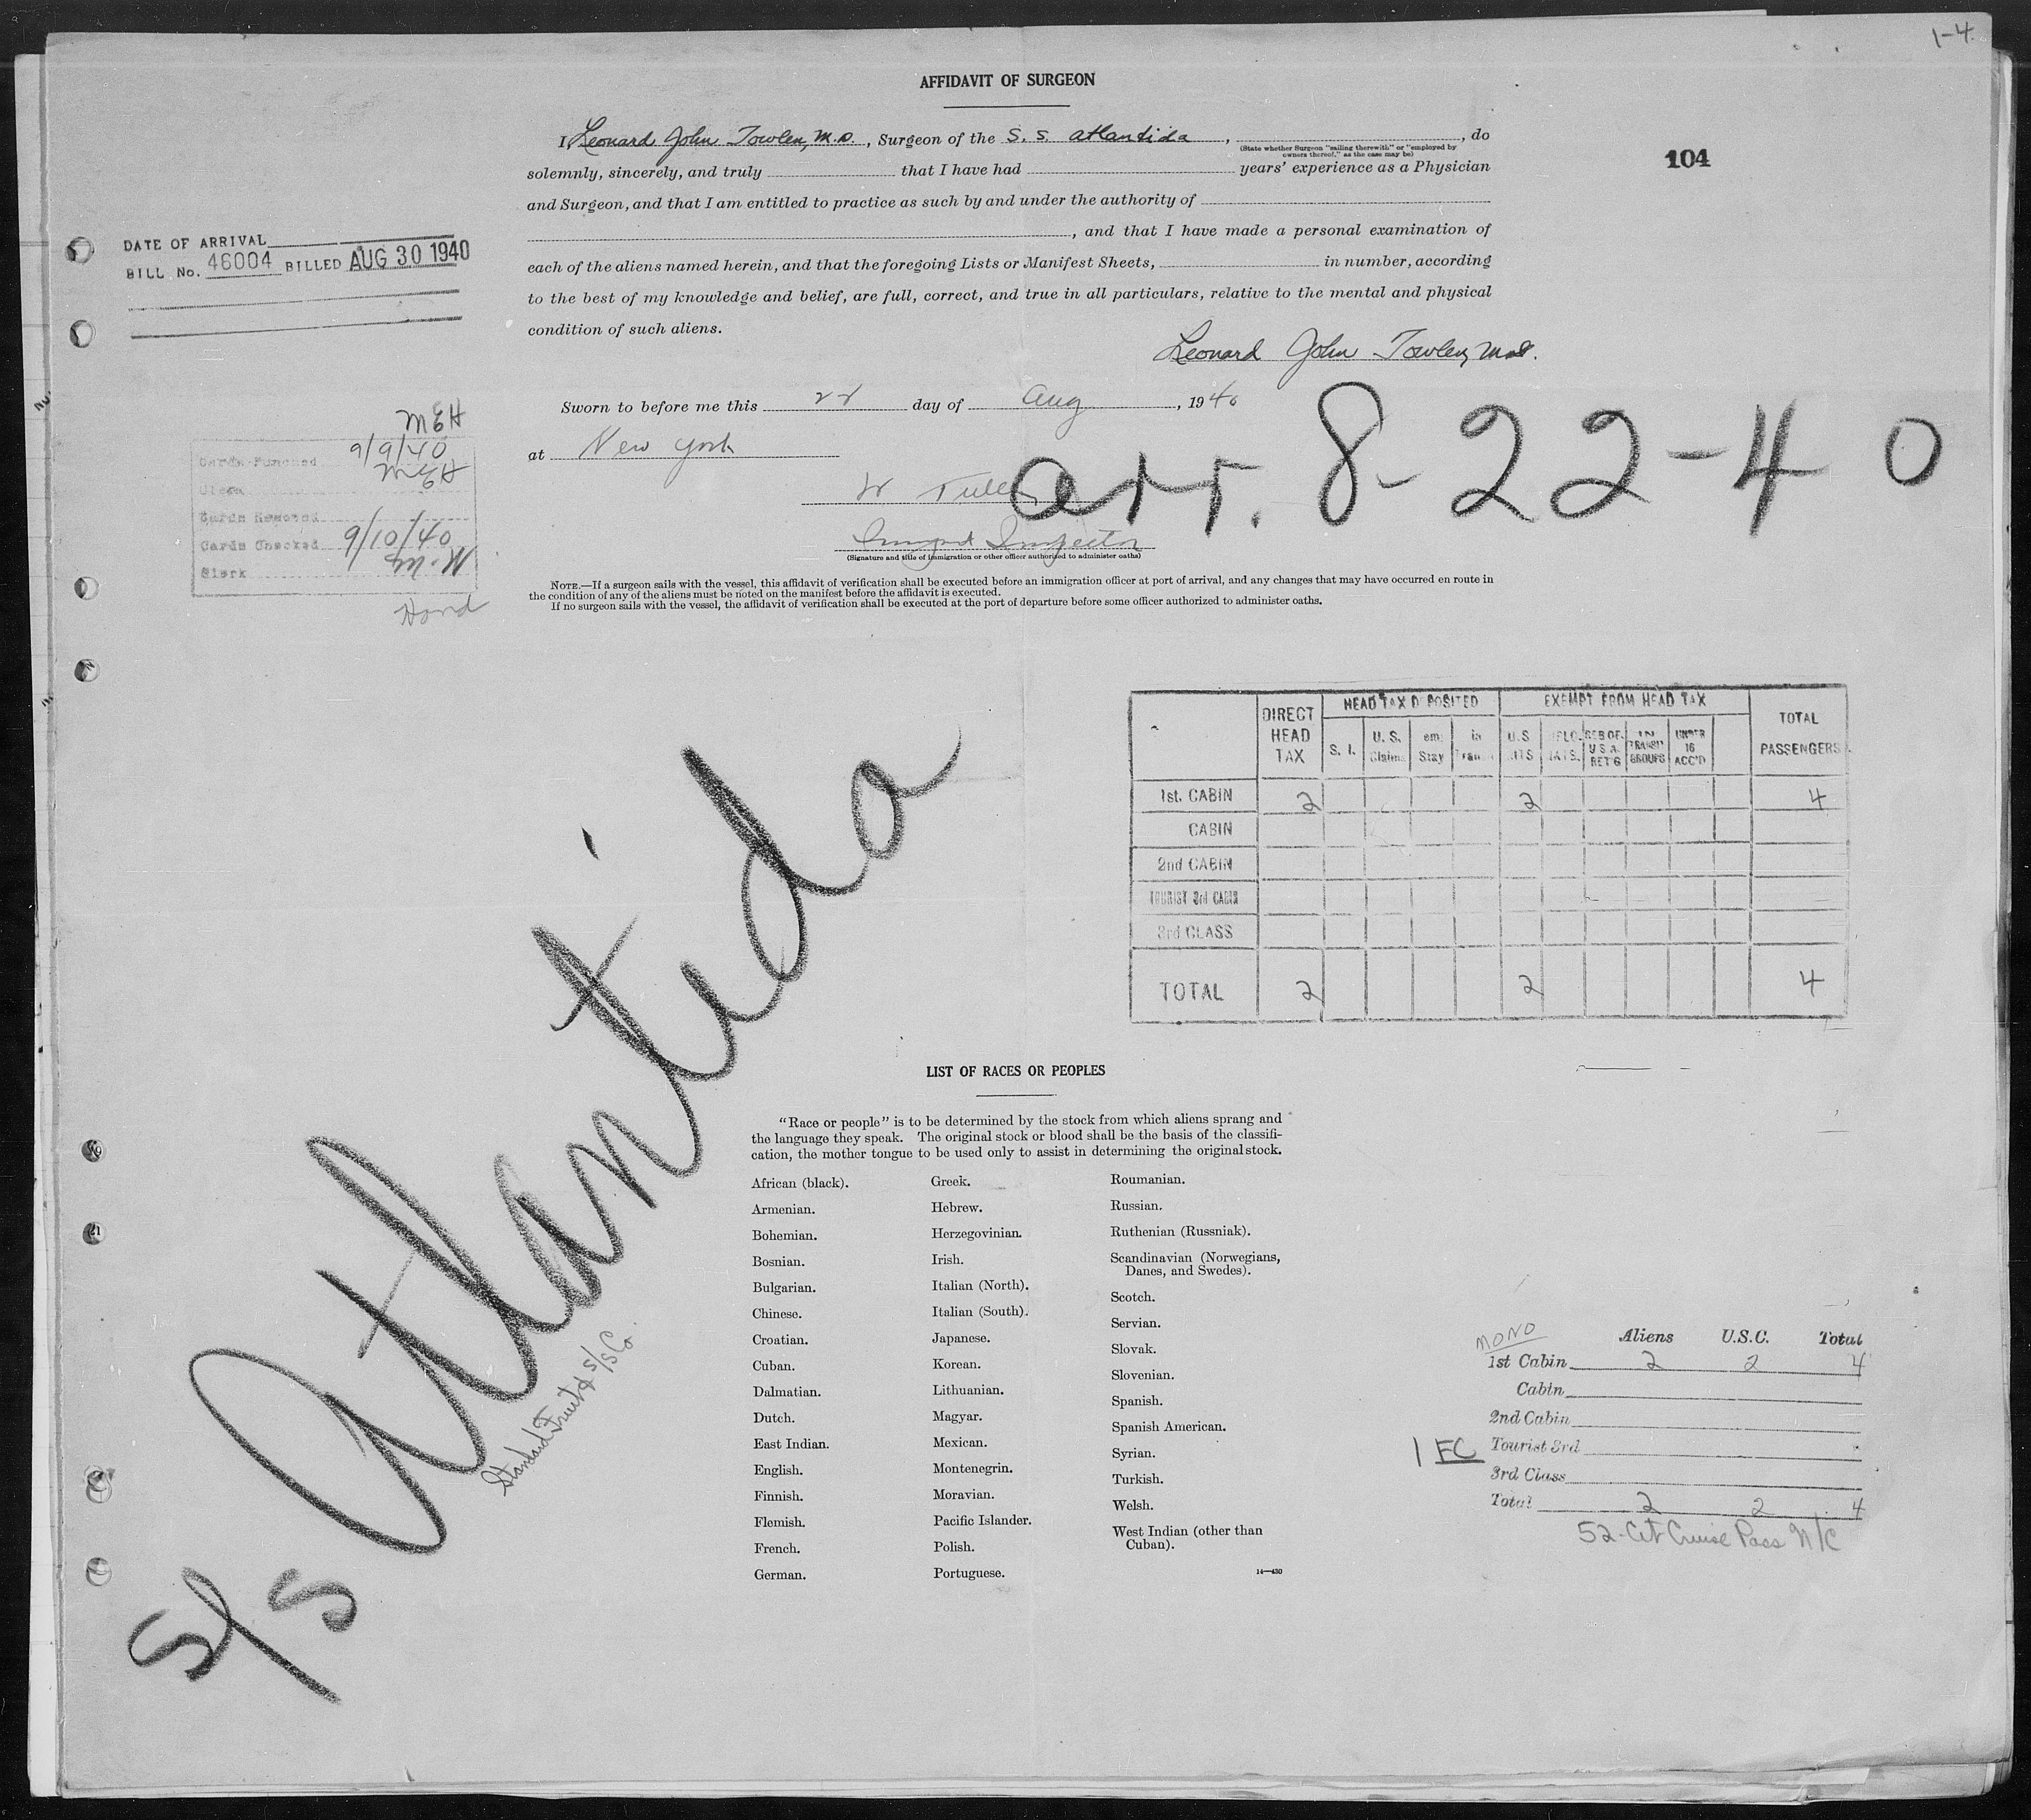 1-4
AFFIDAVIT OF SURGEON
I, Leonard John Towlen, M.D., Surgeon of the S. S. Atlantida, , do
(State whether Surgeon "sailing therewith" or "employed by
owners thereof," as the case may be)
104
solemnly, sincerely, and truly that I have had years' experience as a Physician
and Surgeon, and that I am entitled to practice as such by and under the authority of
, and that I have made a personal examination of
each of the aliens named herein, and that the foregoing Lists or Manifest Sheets, in number, according
to the best of my knowledge and belief, are full, correct, and true in all particulars, relative to the mental and physical
condition of such aliens.
DATE OF ARRIVAL
BILL No. 46004 BILLED AUG 30 1940
Leonard John Towlen, M.D.
Sworn to before me this 22 day of Aug, 1940
at New York
arr. 8-22-40
W
Immgnt Inspector
(Signature and title of immigration or other officer authorized to administer oaths)
MEH
Cards Punched 9/9/40
Clerk MEH
Cards
Cards Checked 9/10/40
Clerk M.W
NOTE.—If a surgeon sails with the vessel, this affidavit of verification shall be executed before an immigration officer at port of arrival, and any changes that may have occurred en route in
the condition of any of the aliens must be noted on the manifest before the affidavit is executed.
If no surgeon sails with the vessel, the affidavit of verification shall be executed at the port of departure before some officer authorized to administer oaths.
DIRECT HEAD TAX HEAD TAX DEPOSITED EXEMPT FROM HEAD TAX TOTAL PASSENGERS
S. I. U. S. Claims Stay in Trans U.S. UNDER 16 ACC'D
1st. CABIN 2 2 4
CABIN
2nd CABIN
TOURIST 3rd CABIN
3rd CLASS
TOTAL 2 2 4
S/S Atlantida
Standard Fruit & S/S Co.
LIST OF RACES OR PEOPLES
"Race or people" is to be determined by the stock from which aliens sprang and
the language they speak. The original stock or blood shall be the basis of the classifi-
cation, the mother tongue to be used only to assist in determining the original stock.
African (black).
Armenian.
Bohemian.
Bosnian.
Bulgarian.
Chinese.
Croatian.
Cuban.
Dalmatian.
Dutch.
East Indian.
English.
Finnish.
Flemish.
French.
German.
Greek.
Hebrew.
Herzegovinian.
Irish.
Italian (North).
Italian (South).
Japanese.
Korean.
Lithuanian.
Magyar.
Mexican.
Montenegrin.
Moravian.
Pacific Islander.
Polish.
Portuguese.
Roumanian.
Russian.
Ruthenian (Russniak).
Scandinavian (Norwegians,
Danes, and Swedes).
Scotch.
Servian.
Slovak.
Slovenian.
Spanish.
Spanish American.
Syrian.
Turkish.
Welsh.
West Indian (other than
Cuban).
14—430
MONO
Aliens U.S.C. Total
1st Cabin 2 2 4
Cabin
2nd Cabin
1 FC Tourist 3rd
3rd Class
Total 2 2 4
52-Cit Cruise Pass N/C